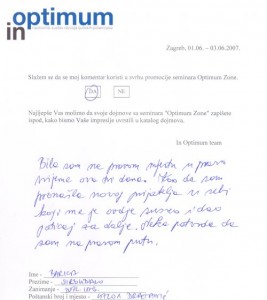 in optimum
Zagreb, 01.06. – 03.06.2007.
Slažem se da se moj komentar koristi u svrhu promocije seminara Optimum Zone.
DA NE
Najljepše Vas molimo da svoje dojmove sa seminara "Optimum Zone" zapišete
ispod, kako bismo Vaše impresije uvrstili u katalog dojmova.
In Optimum team
Bila sam na pravom mjestu u pravo
vrijeme ova tri dana. Kao da sam
pronašla novog prijatelja u sebi
koji me je ovdje susreo i dao
poticaj za dalje. Neka potvrda da
sam na pravom putu.
Ime -
Prezime -
Zanimanje -
Poštanski broj i mjesto -